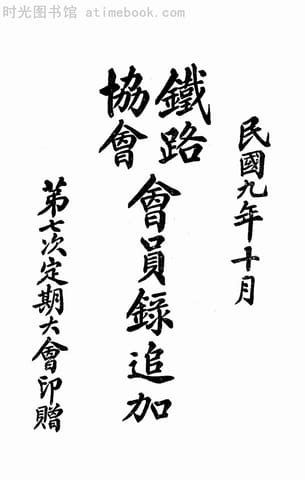 时光图书馆 · atimebook.com
民國九年十月
鐵路
協會
會員錄追加
第七次定期大會印贈